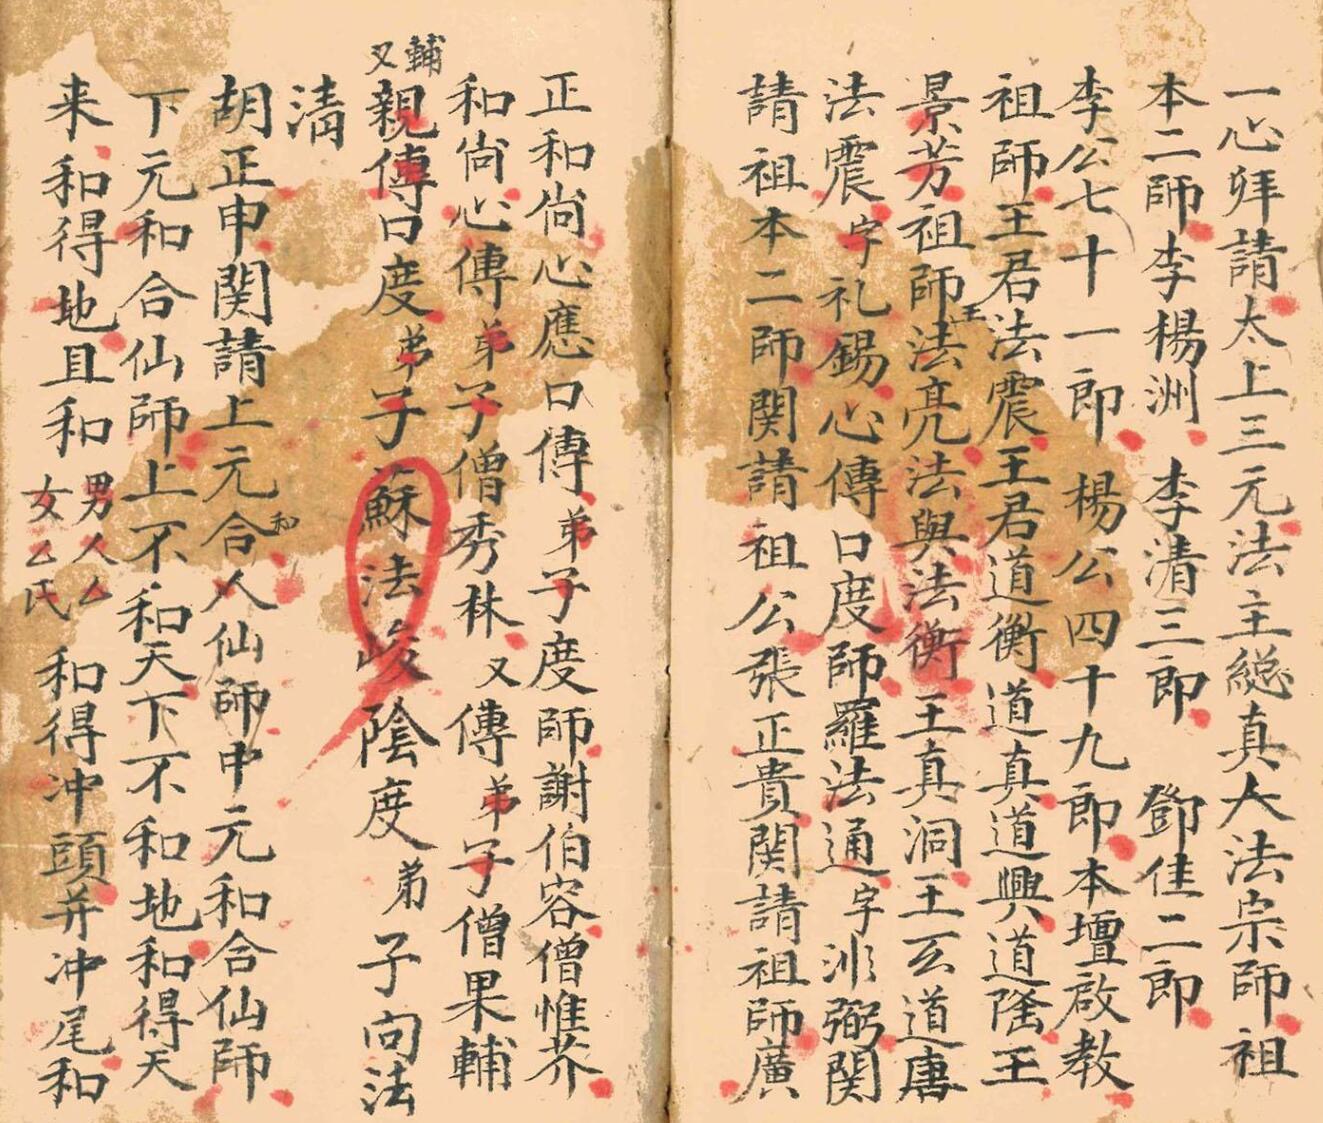 一心拜請太上三元法主總真大法宗師祖
本二師李楊洲 李清三郎 鄧佳二郎
李公七十一郎 楊公四十九郎本壇啟教
祖師王君法震王君道衡道真道興道隆王
景芳祖師王法亮法與法衡王真洞王云道唐
法震字礼錫心傳口度師羅法通字𣲖弼関
請祖本二師関請祖公張正貴関請祖師廣
正和尙心應口傳弟子度師謝伯容僧惟芥
和尙心傳弟子僧秀林又傳弟子僧果輔
又輔親傳口度弟子蘇法峻陰度弟子向法
清
胡正申関請上元和合人仙師中元和合仙師
下元和合仙師上不和天下不和地和得天
来和得地且和男人厶女厶氏和得沖頭并沖尾和